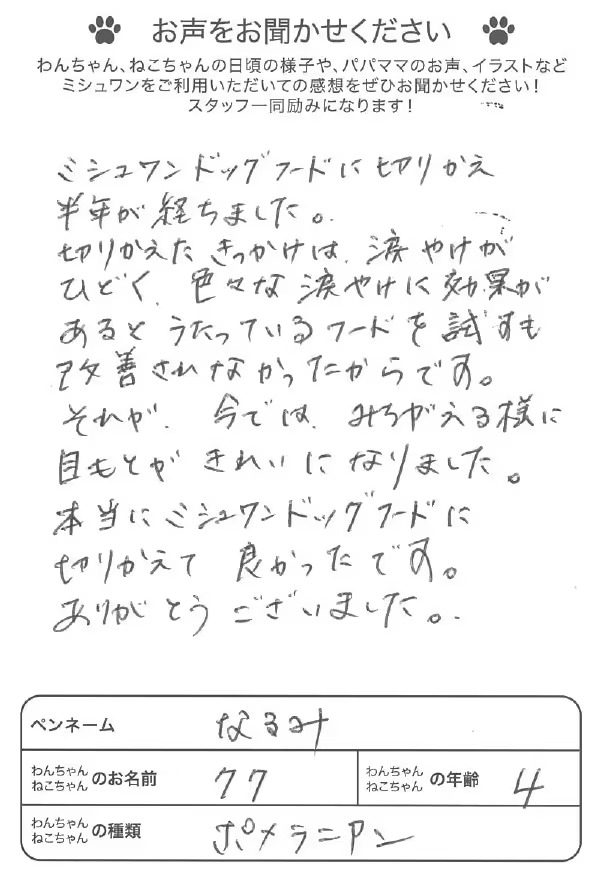 お声をお聞かせください
わんちゃん、ねこちゃんの日頃の様子や、パパママのお声、イラストなど
ミシュワンをご利用いただいての感想をぜひお聞かせください!
スタッフ一同励みになります!
ミシュワンドッグフードに切りかえ
半年が経ちました。
切りかえたきっかけは、涙やけが
ひどく、色々な涙やけに効果が
あるとうたっているフードを試すも
改善されなかったからです。
それが、今では、みちがえる様に
目もとがきれいになりました。
本当にミシュワンドッグフードに
切りかえて良かったです。
ありがとうございました。
ペンネーム なるみ
わんちゃん ねこちゃん のお名前 クク わんちゃん ねこちゃん の年齢 4
わんちゃん ねこちゃん の種類 ポメラニアン